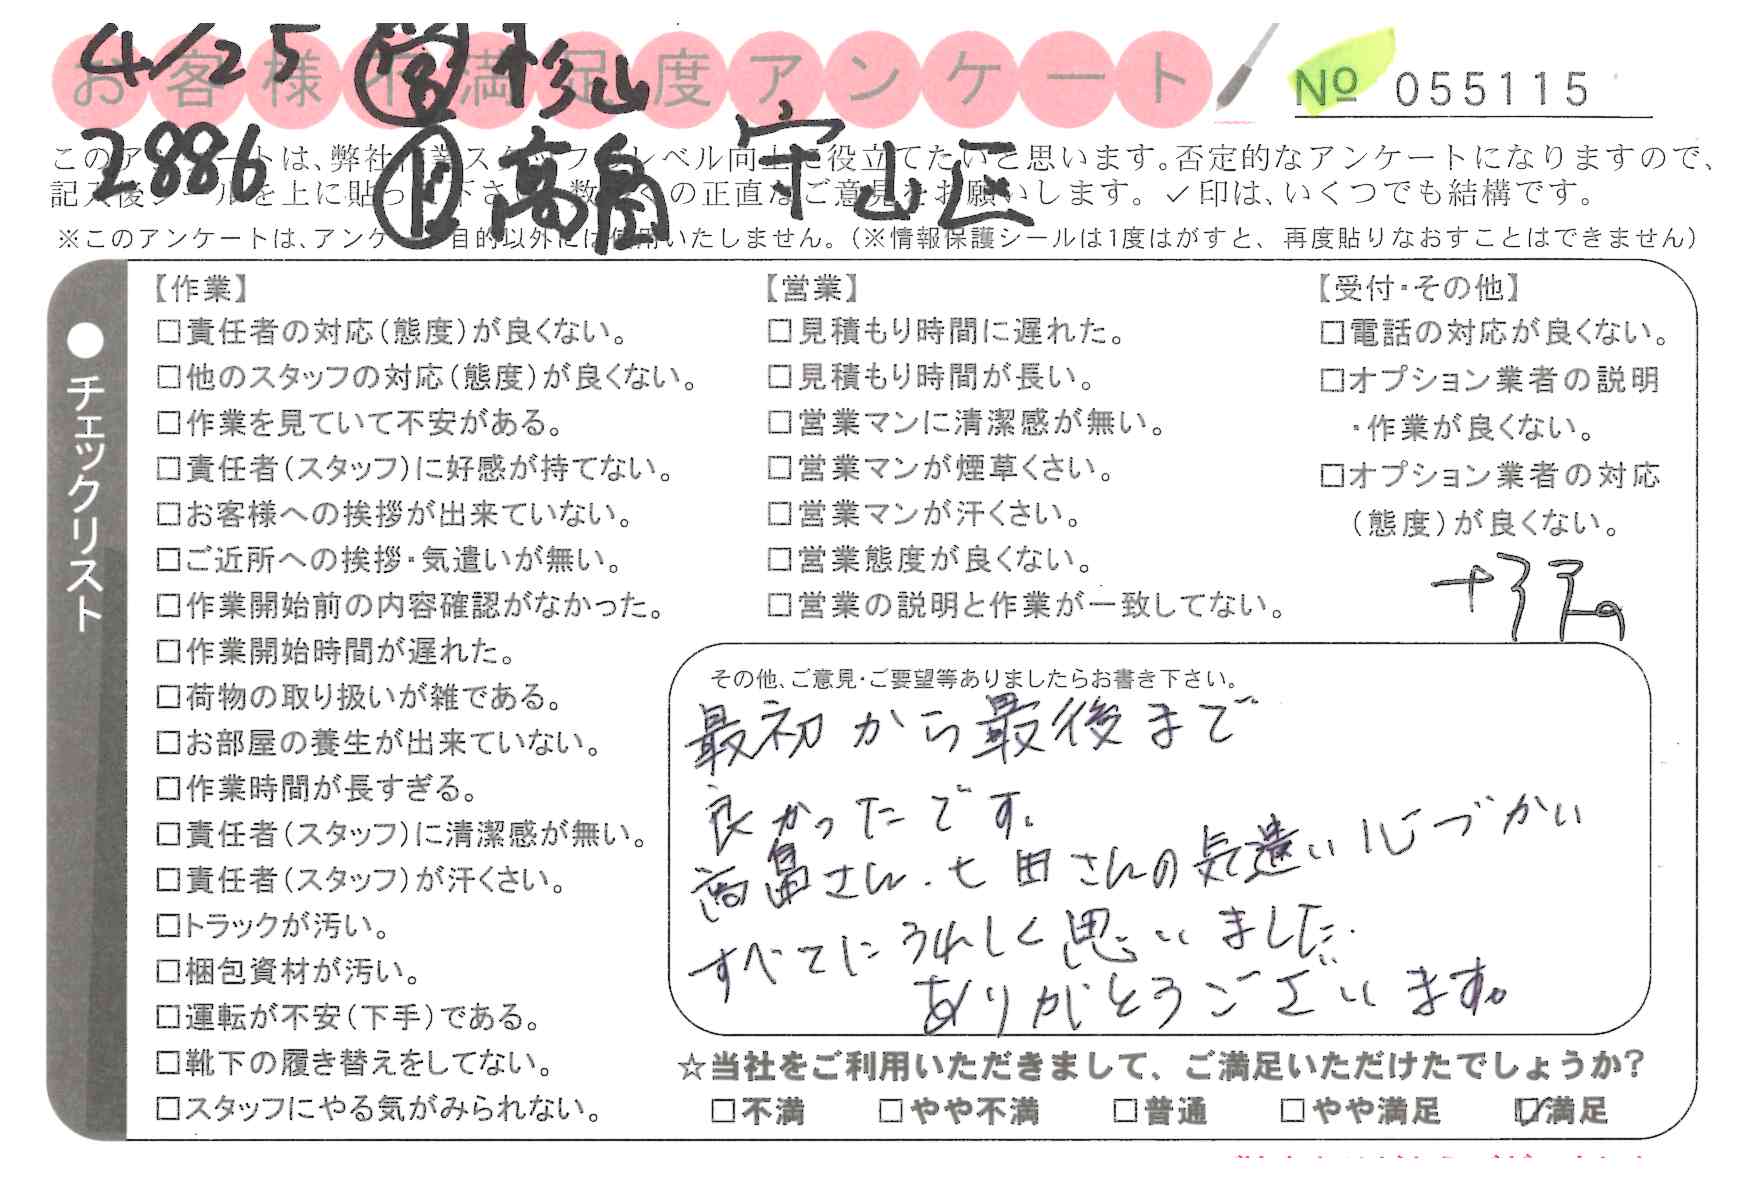 4/25 営 杉山
お客様不満足度アンケート
№ 055115
2886 高畠 守山区
このアンケートは、弊社作業スタッフのレベル向上に役立てたいと思います。否定的なアンケートになりますので、
記入後シールを上に貼って下さい。数多くの正直なご意見をお願いします。✓印は、いくつでも結構です。
※このアンケートは、アンケート目的以外には使用いたしません。(※情報保護シールは1度はがすと、再度貼りなおすことはできません)
●チェックリスト
【作業】
□責任者の対応(態度)が良くない。
□他のスタッフの対応(態度)が良くない。
□作業を見ていて不安がある。
□責任者(スタッフ)に好感が持てない。
□お客様への挨拶が出来ていない。
□ご近所への挨拶・気遣いが無い。
□作業開始前の内容確認がなかった。
□作業開始時間が遅れた。
□荷物の取り扱いが雑である。
□お部屋の養生が出来ていない。
□作業時間が長すぎる。
□責任者(スタッフ)に清潔感が無い。
□責任者(スタッフ)が汗くさい。
□トラックが汚い。
□梱包資材が汚い。
□運転が不安(下手)である。
□靴下の履き替えをしてない。
□スタッフにやる気がみられない。
【営業】
□見積もり時間に遅れた。
□見積もり時間が長い。
□営業マンに清潔感が無い。
□営業マンが煙草くさい。
□営業マンが汗くさい。
□営業態度が良くない。
□営業の説明と作業が一致してない。
【受付・その他】
□電話の対応が良くない。
□オプション業者の説明
・作業が良くない。
□オプション業者の対応
(態度)が良くない。
その他、ご意見・ご要望等ありましたらお書き下さい。
最初から最後まで
良かったです。
高畠さん、七田さんの気遣い心づかい
すべてにうれしく思いました。
ありがとうございます。
☆当社をご利用いただきまして、ご満足いただけたでしょうか?
□不満 □やや不満 □普通 □やや満足 ☑満足